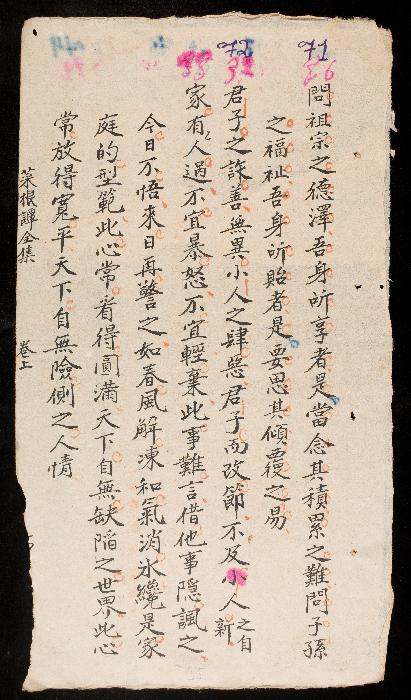 71
72
問祖宗之德澤吾身所享者是當念其積累之難問子孫
之福祉吾身所貽者是要思其傾覆之易
君子之詐善無異小人之肆惡君子而改節不及小人之自新
家有人過不宜暴怒不宜輕棄此事難言借他事隱諷之
今日不悟來日再警之如春風解凍和氣消冰纔是家
庭的型範此心常看得圓滿天下自無缺陷之世界此心
常放得寬平天下自無險側之人情
菜根譚全集 卷上